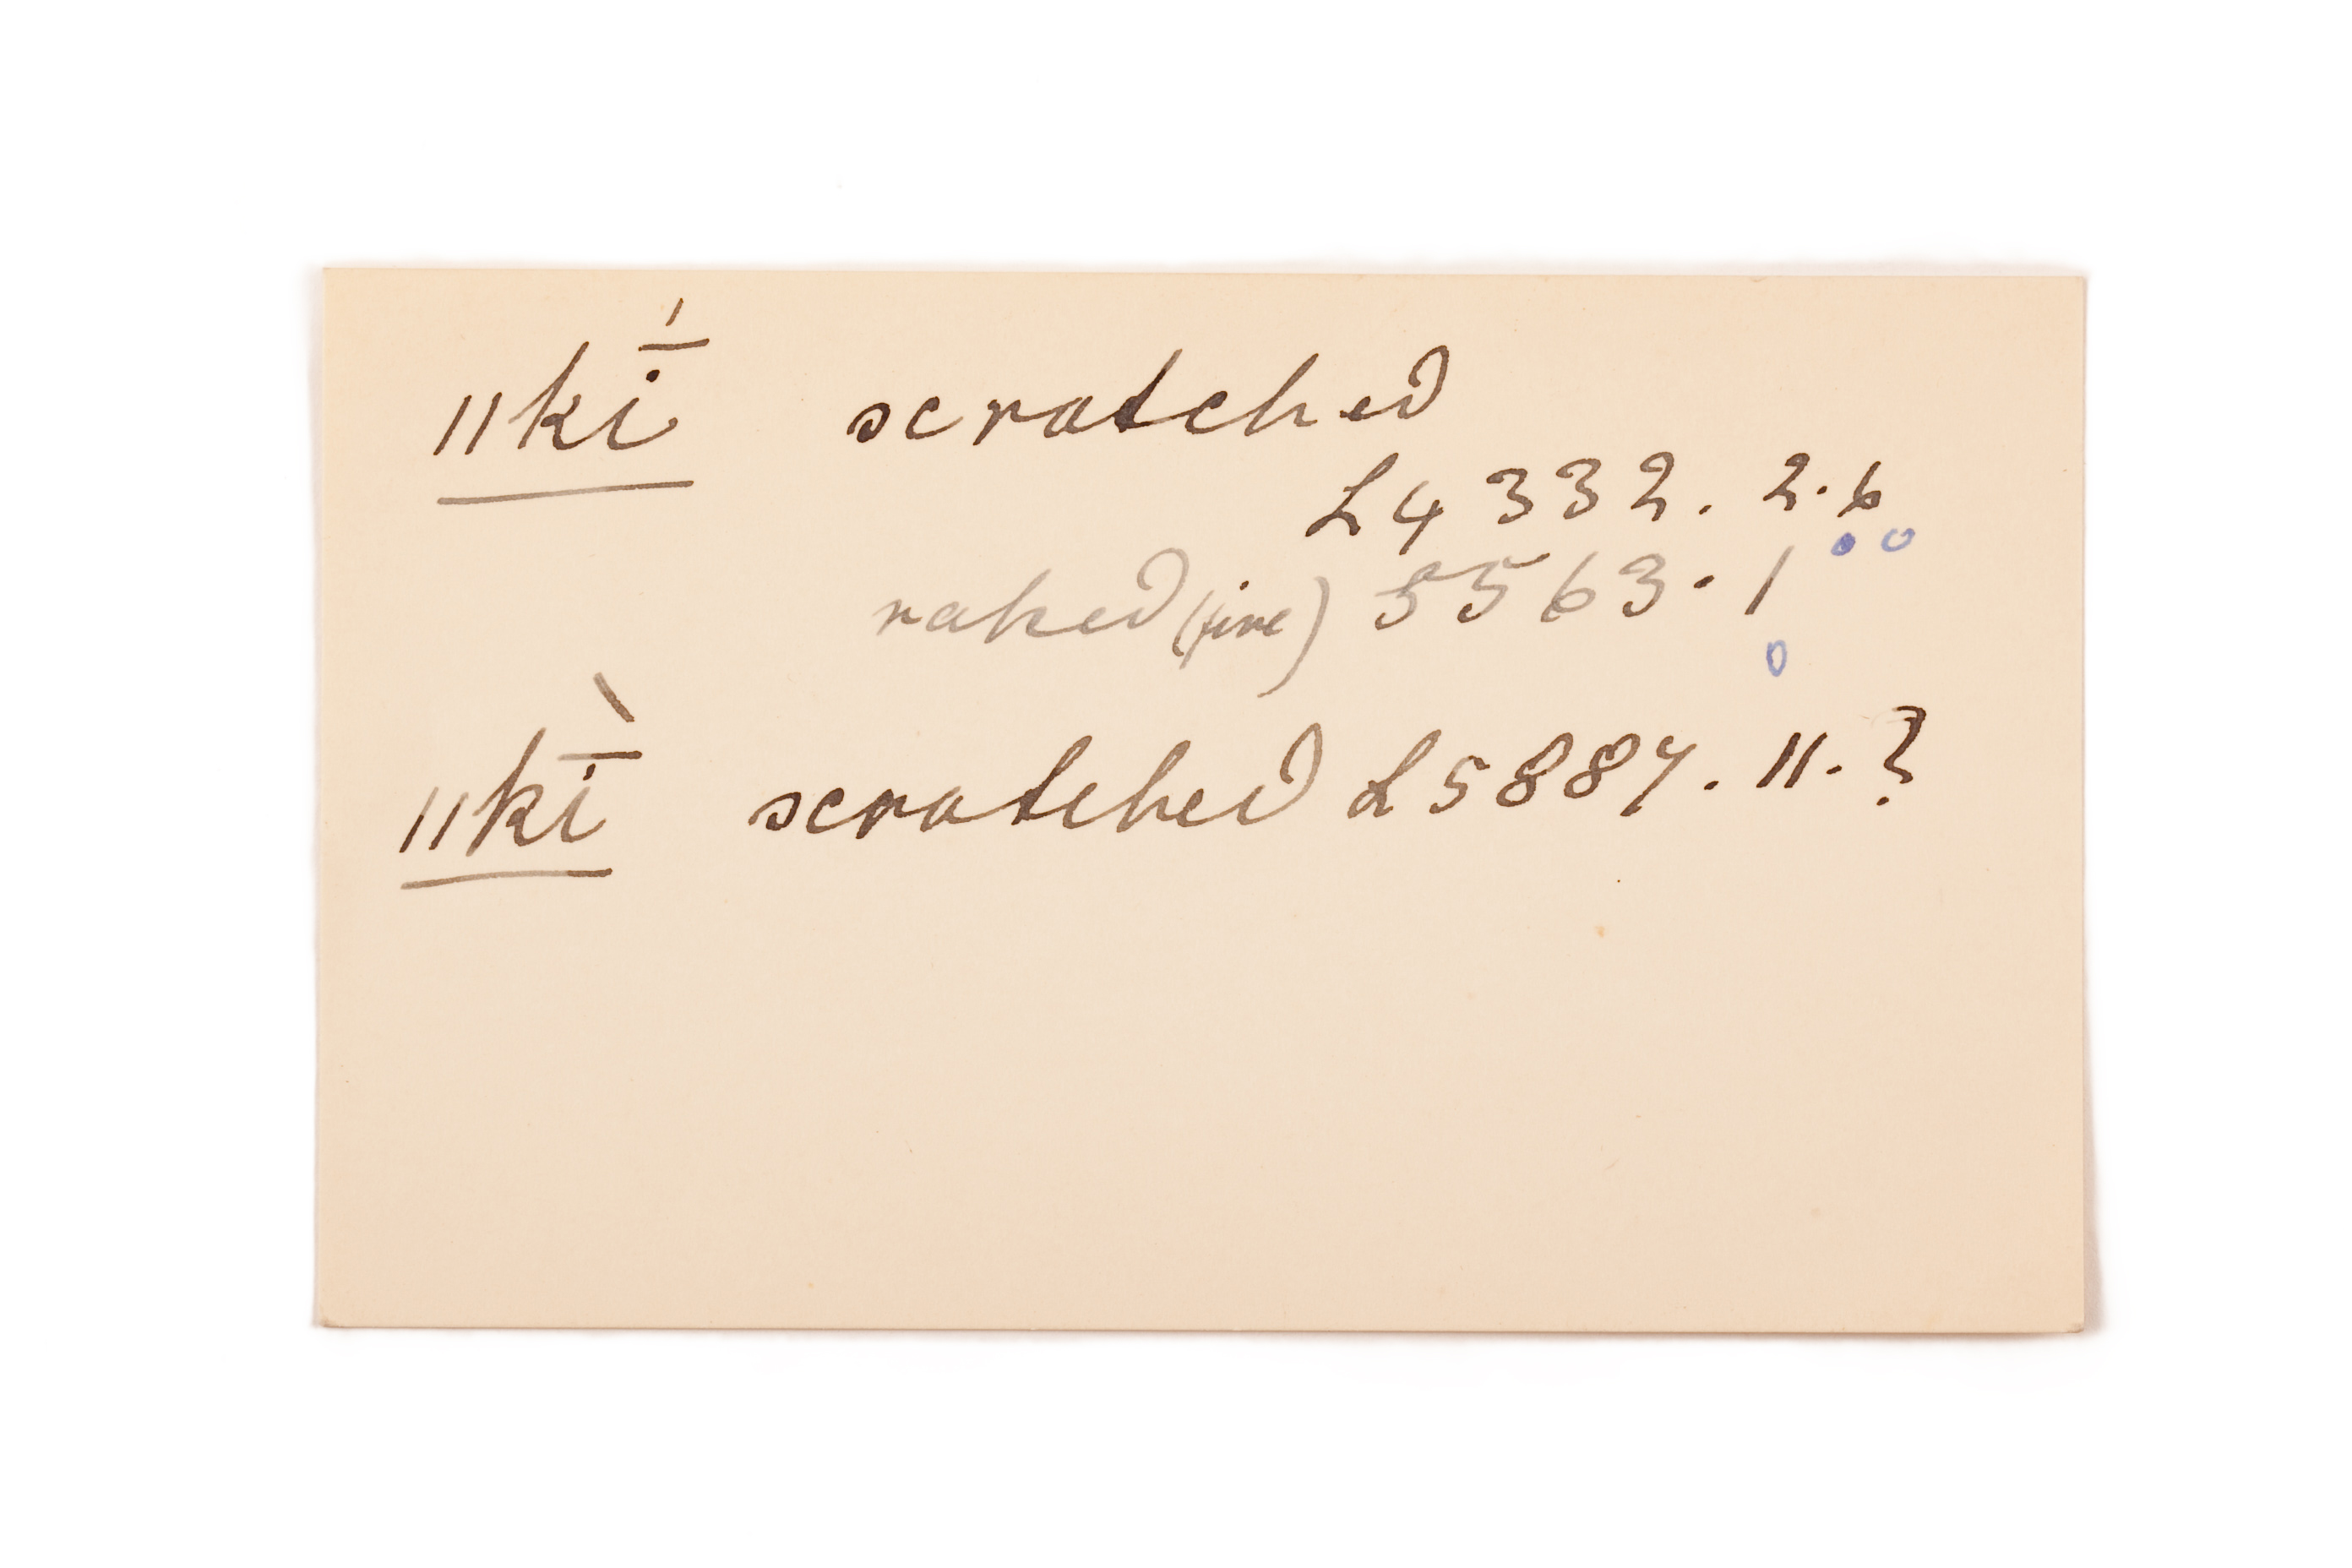 ǁkī́ scratched
L4332. 2.6
raked (fire) 5563. 1
ǁkī̀ scratched L5887. 11.?